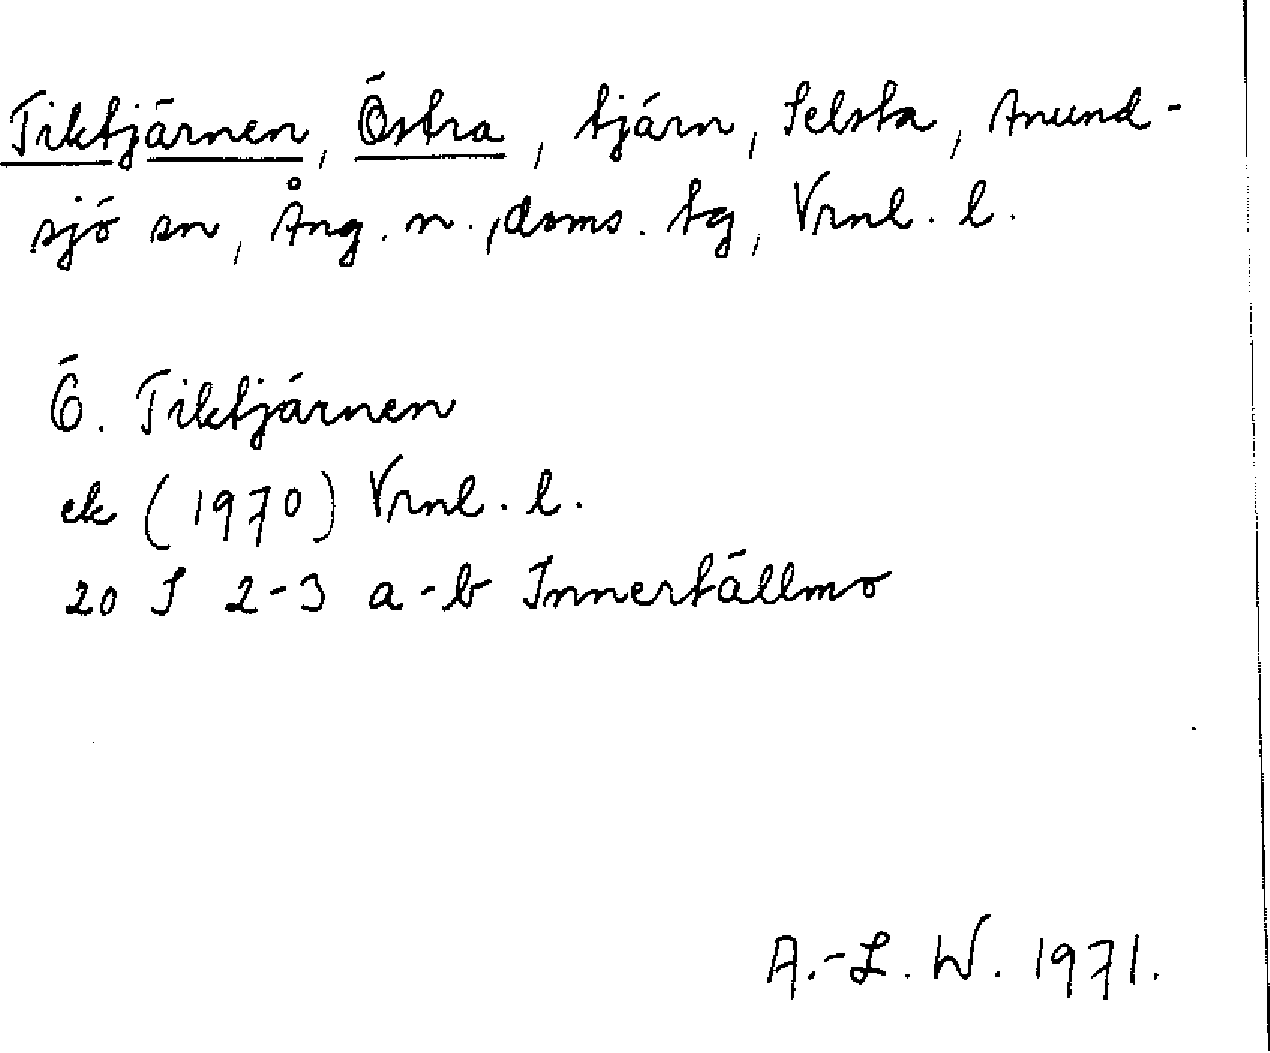 Tiktjärnen, Östra, tjärn, Selsta, Anund-
sjö sn, Ång. n., doms. tg, Vrnl. l.
Ö. Tiktjärnen
ek (1970) Vrnl. l.
20 J 2-3 a-b Innertällmo
A.-L. W. 1971.